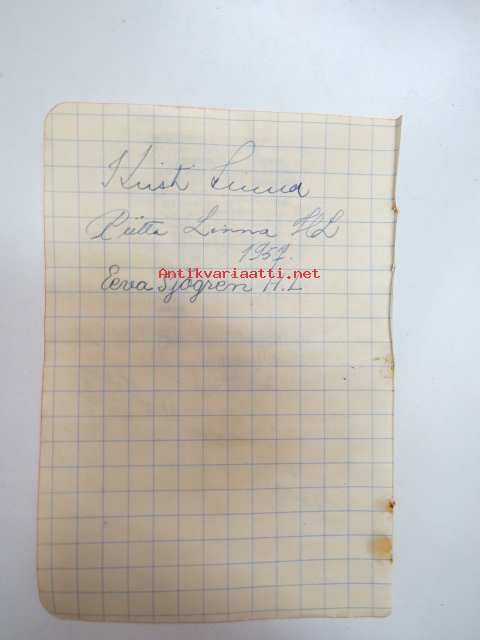 Kirsti Linna
Riitta Linna HL
1957.
Antikvariaatti.net
Eeva Sjögren H.L